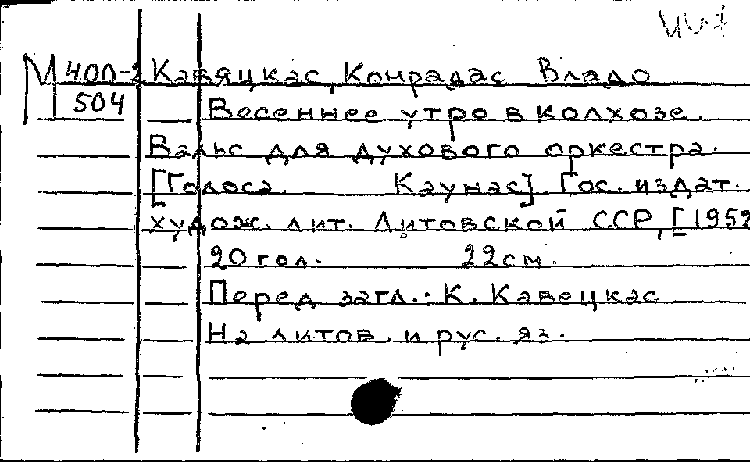 М 400-2 Кавяцкас, Конрадас Владо
504 Весеннее утро в колхозе.
Вальс для духового оркестра.
[Голоса. Каунас]. Гос. издат.
худож. лит. Литовской ССР, [1952
20 гол. 22см.
Перед загл.: К. Кавецкас
На литов. и рус. яз.